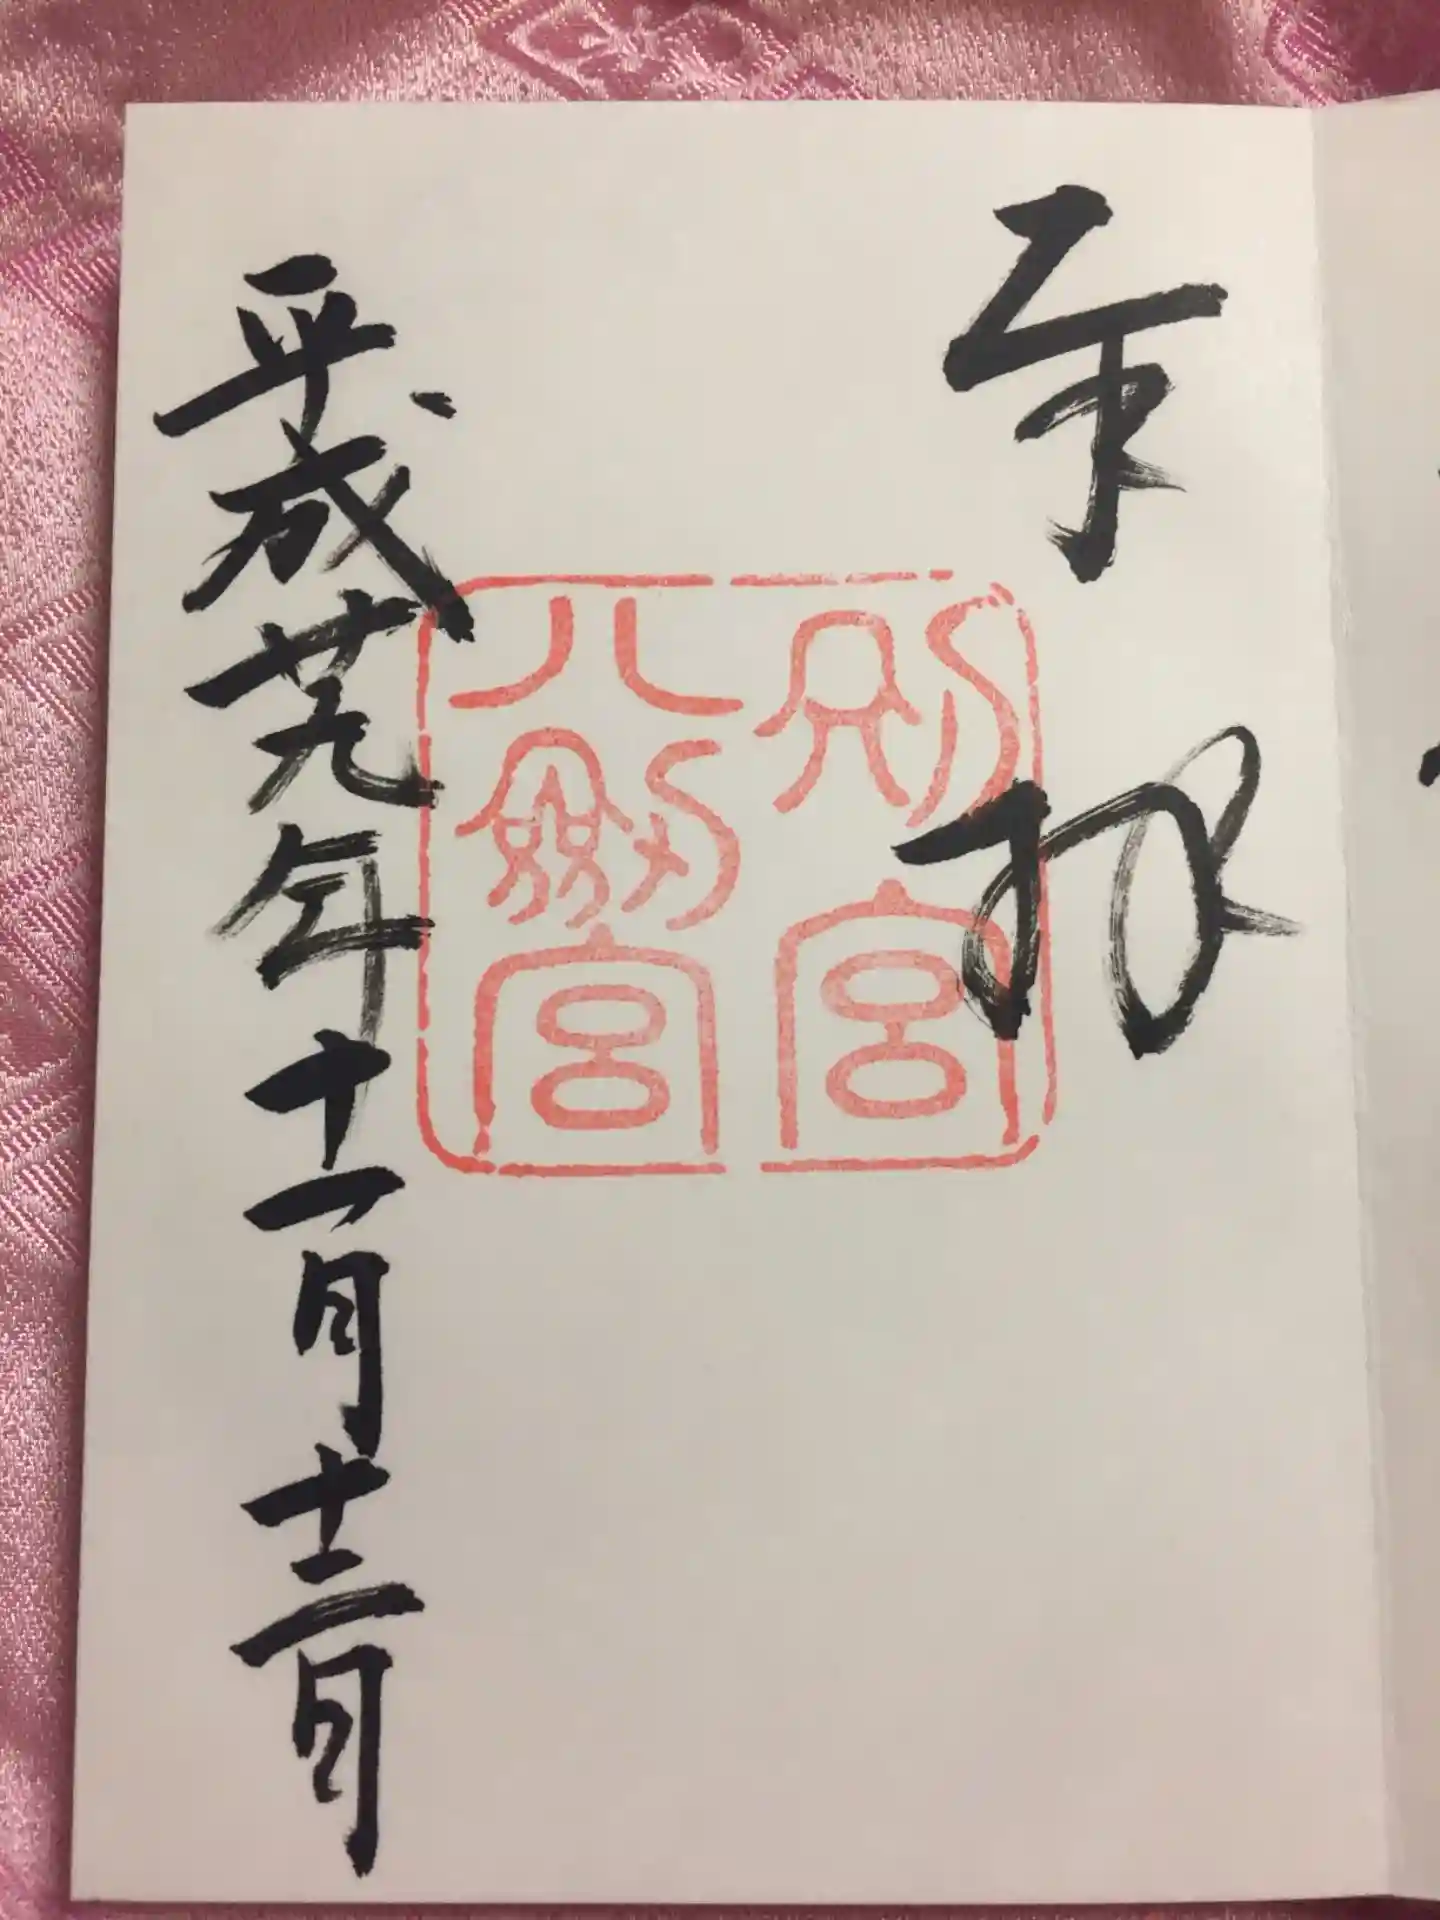 奉拝
別宮
八劔宮
平成廿九年十一月十二日